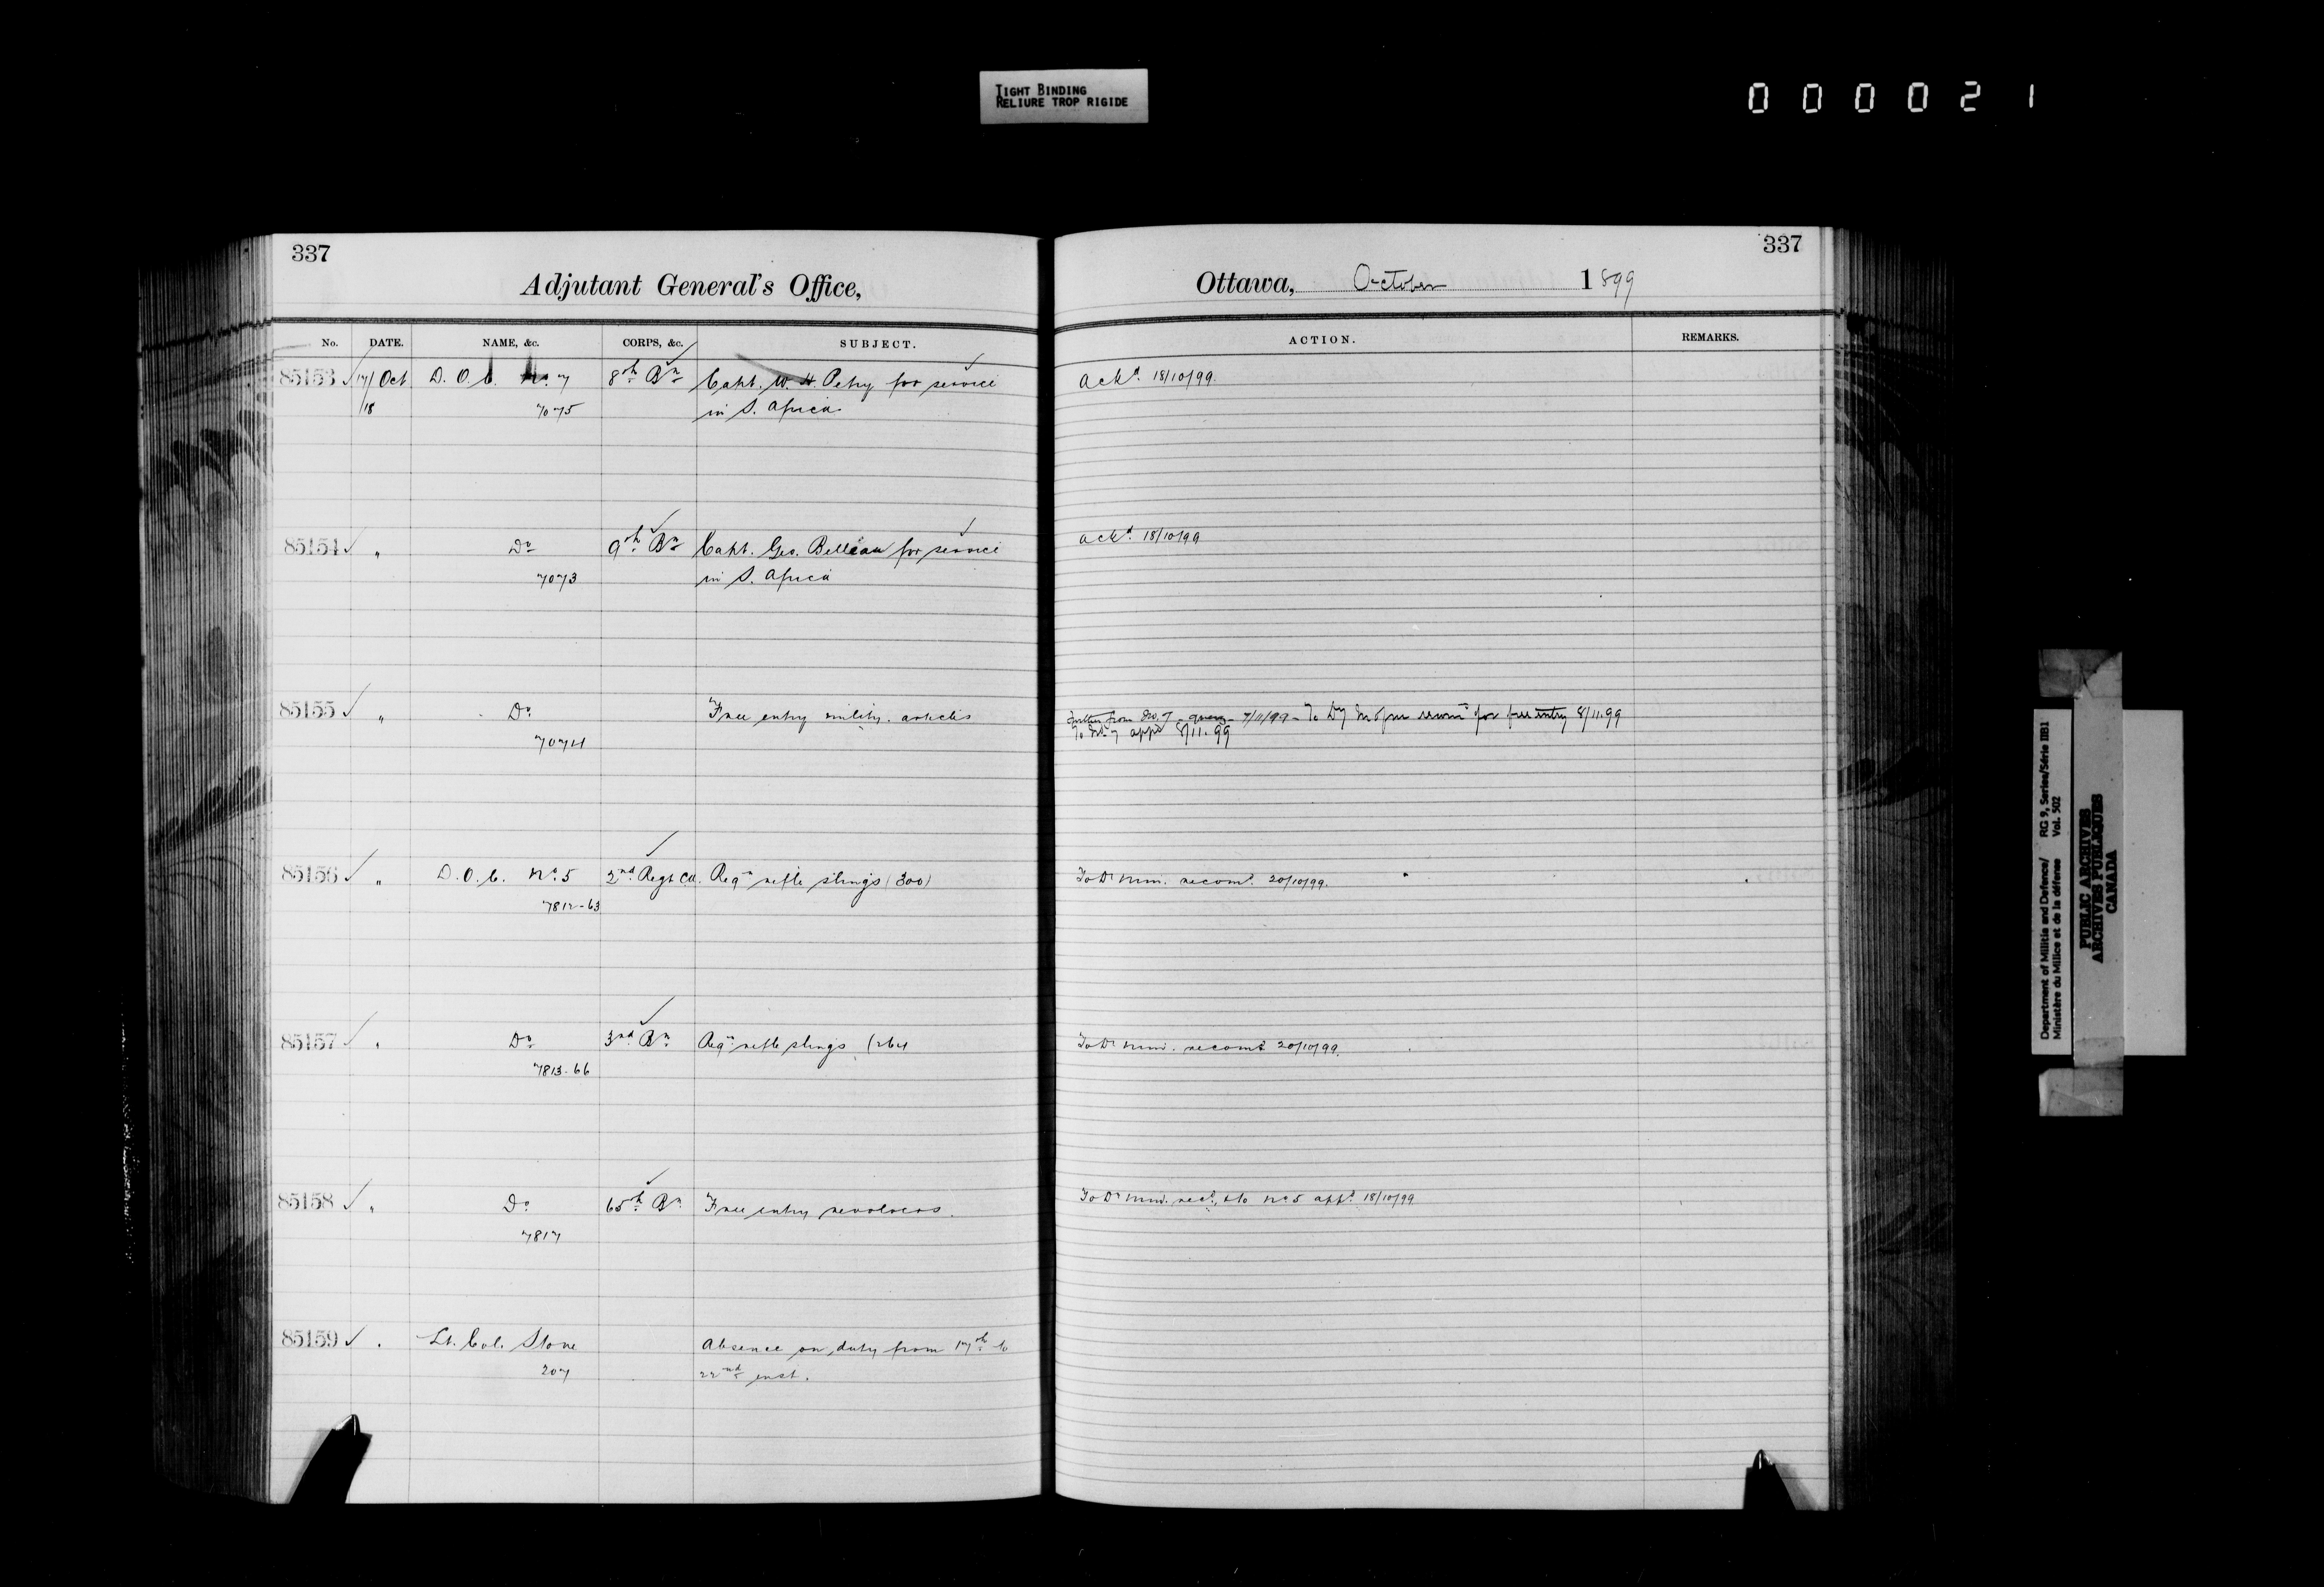 TIGHT BINDING
RELIURE TROP RIGIDE
000021
337
Adjutant General's Office,
No. DATE. NAME, &c. CORPS, &c. SUBJECT.
85153 17/Oct D. O. C. No. 7 8th Bn Capt. W. H. Petry for service
/18 7075 in S. Africa
85154 " Do 9th Bn Capt. Geo. Belleau for service
7073 in S. Africa
85155 " Do Free entry mility. articles
7074
85156 " D. O. C. No. 5 2nd Regt CA. Reqn rifle slings (300)
7812-63
85157 " Do 3rd Bn Reqn rifle slings (264
7813-66
85158 " Do 65th Bn Free entry revolvers.
7817
85159 " Lt. Col. Stone Absence on duty from 17th to
207 22nd inst.
337
Ottawa, October 1899
ACTION. REMARKS.
Ackd. 18/10/99.
Ackd. 18/10/99
Further from No. 7 - query - 7/11/99 - To Dy Min for free entry 8/11.99
To No 7 appd 8/11.99
To Dy Min. recomd. 20/10/99.
To Dy Min. recomd 20/10/99.
To Dy Min. recd. & to No 5 appd. 18/10/99
Department of Militia and Defence/ RG 9, Series/Série IIB1
Ministère du Milice et de la défense Vol. 502
PUBLIC ARCHIVES
ARCHIVES PUBLIQUES
CANADA